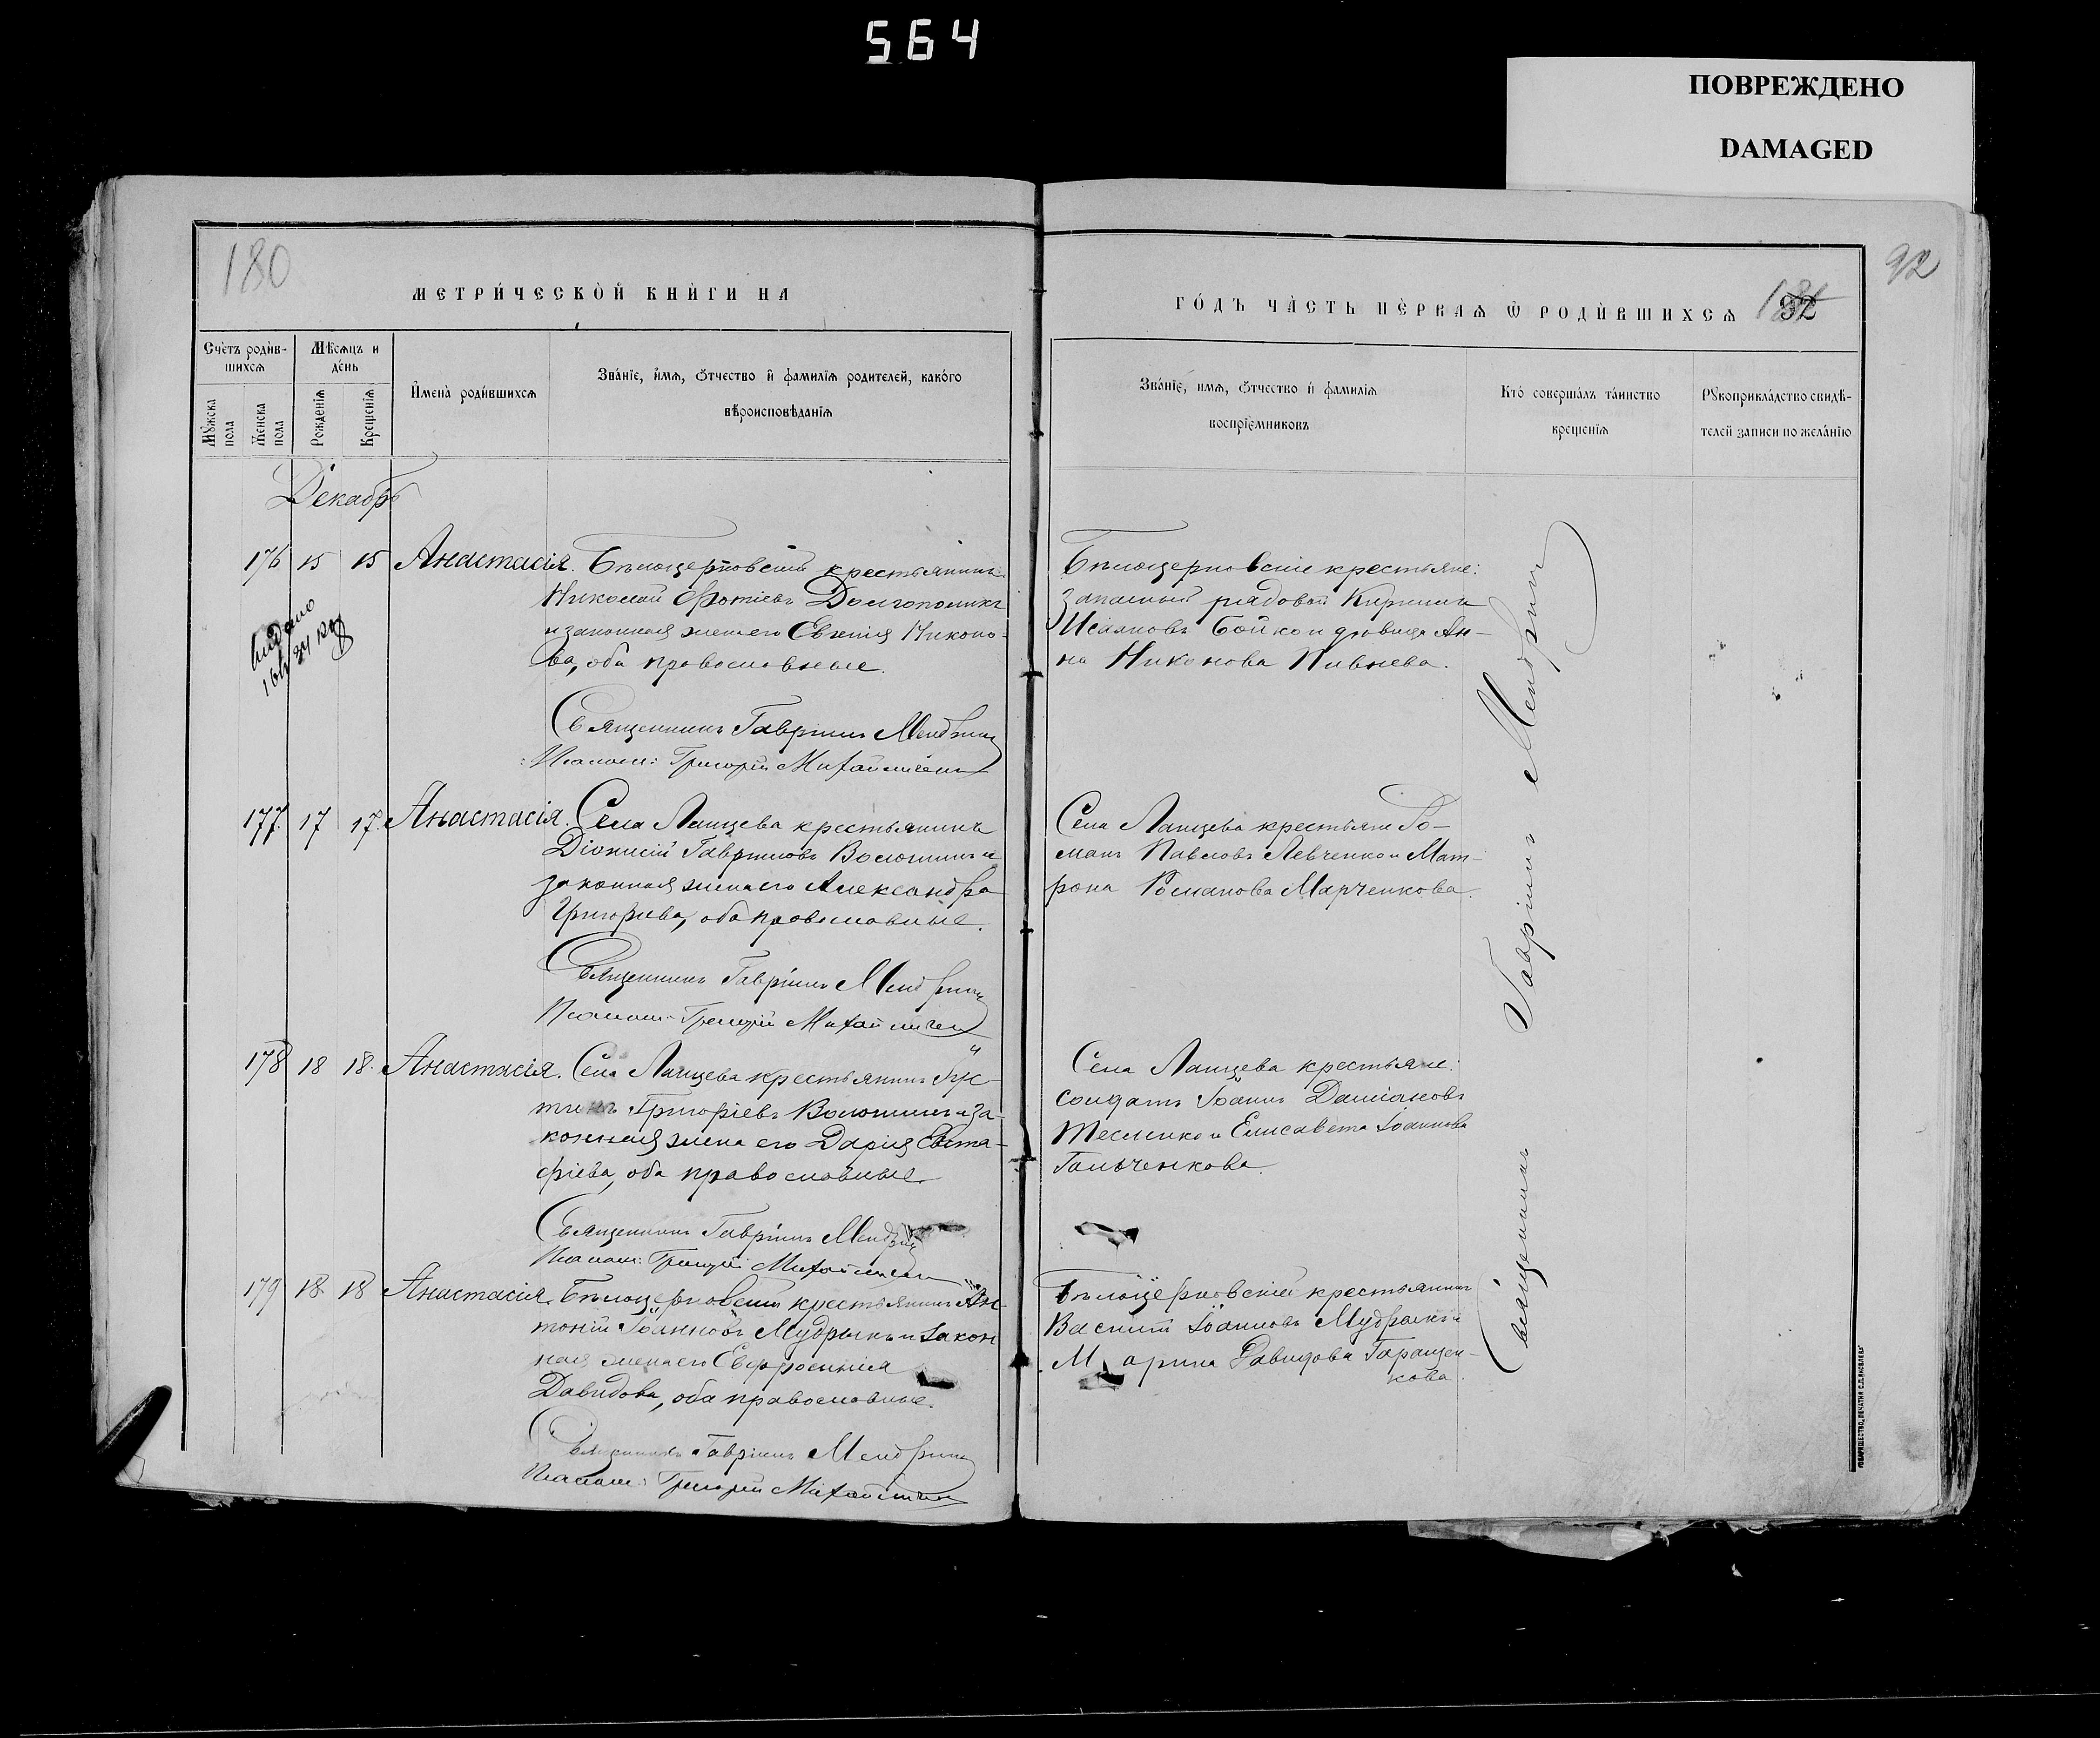 564
ПОВРЕЖДЕНО
DAMAGED
180
МЕТРИ́ЧЕСКОЙ КНИ́ГИ НА
Счётъ роди́в-
шихсѧ
Мѣ́сѧцъ и
де́нь
Му́жска
пола
Же́нска
пола
Рожде́нїѧ
Креще́нїѧ
И҆мена̀ роди́вшихсѧ
Зва́нїе, и҆́мѧ, ѻ҆́тчество и҆ фамилїѧ родителей, како́го
вѣроисповѣ́данїѧ
Декабрь
176 15 15 Анастасія. Бѣлоцерковскій крестьянинъ
Николай Фотіевъ Долгополикъ
и законная жена его Евгенія Никоно-
ва, оба православные.
видано
Священникъ Гавріилъ Мендрин
Псалом: Григорій Михайличен
177. 17 17. Анастасія. Села Лапцева крестьянинъ
Діонисій Гавриловъ Волошинъ и
законная жена его Александра
Григорьева, оба православные.
Священникъ Гавріилъ Мендрин
Псалом: Григорій Михайличен
178 18 18. Анастасія. Села Лапцева крестьянинъ Іус-
тинъ Григоріевъ Волошинъ и за-
конная жена его Дарія Евста-
фіева, оба православные
Священникъ Гавріилъ Мендрин
Псалом: Григорій Михайличен
179 18 18 Анастасія. Бѣлоцерковскій крестьянинъ Ан-
тоній Іоанновъ Мудрыкъ и закон
ная жена его Евфросинія
Давидова, оба православные.
Священникъ Гавріилъ Мендрин
Псалом: Григорій Михайличен
92
ГО́ДЪ ЧА́СТЬ ПЕ́РВАѦ Ѡ҆ РОДИ́ВШИХСѦ
181
92
Зва́нїе, имѧ, ѻ҆́тчество и҆ фамилїѧ
воспрїе́мниковъ
Кто̀ соверша́лъ та́инство
креще́нїѧ
Рꙋкоприкла́дство свидѣ́-
телей записи по жела́нїю
Бѣлоцерковскіе крестьяне:
запасный рядовой Кириллъ
Исааковъ Бойко и дѣвица Ан-
на Никонова Пивнева.
Села Лапцева крестьяне Ро-
манъ Павловъ Левченко и Мат-
рона Романова Марченкова.
Села Лапцева крестьяне:
солдатъ Іоаннъ Даміановъ
Тесленко и Елисавета Іоаннова
Гальченкова.
Бѣлоцерковскій крестьянинъ
Василій Іоанновъ Мудрыкъ и
Марина Давидова Гаращен-
кова.
Священникъ Гавріилъ Мендрин